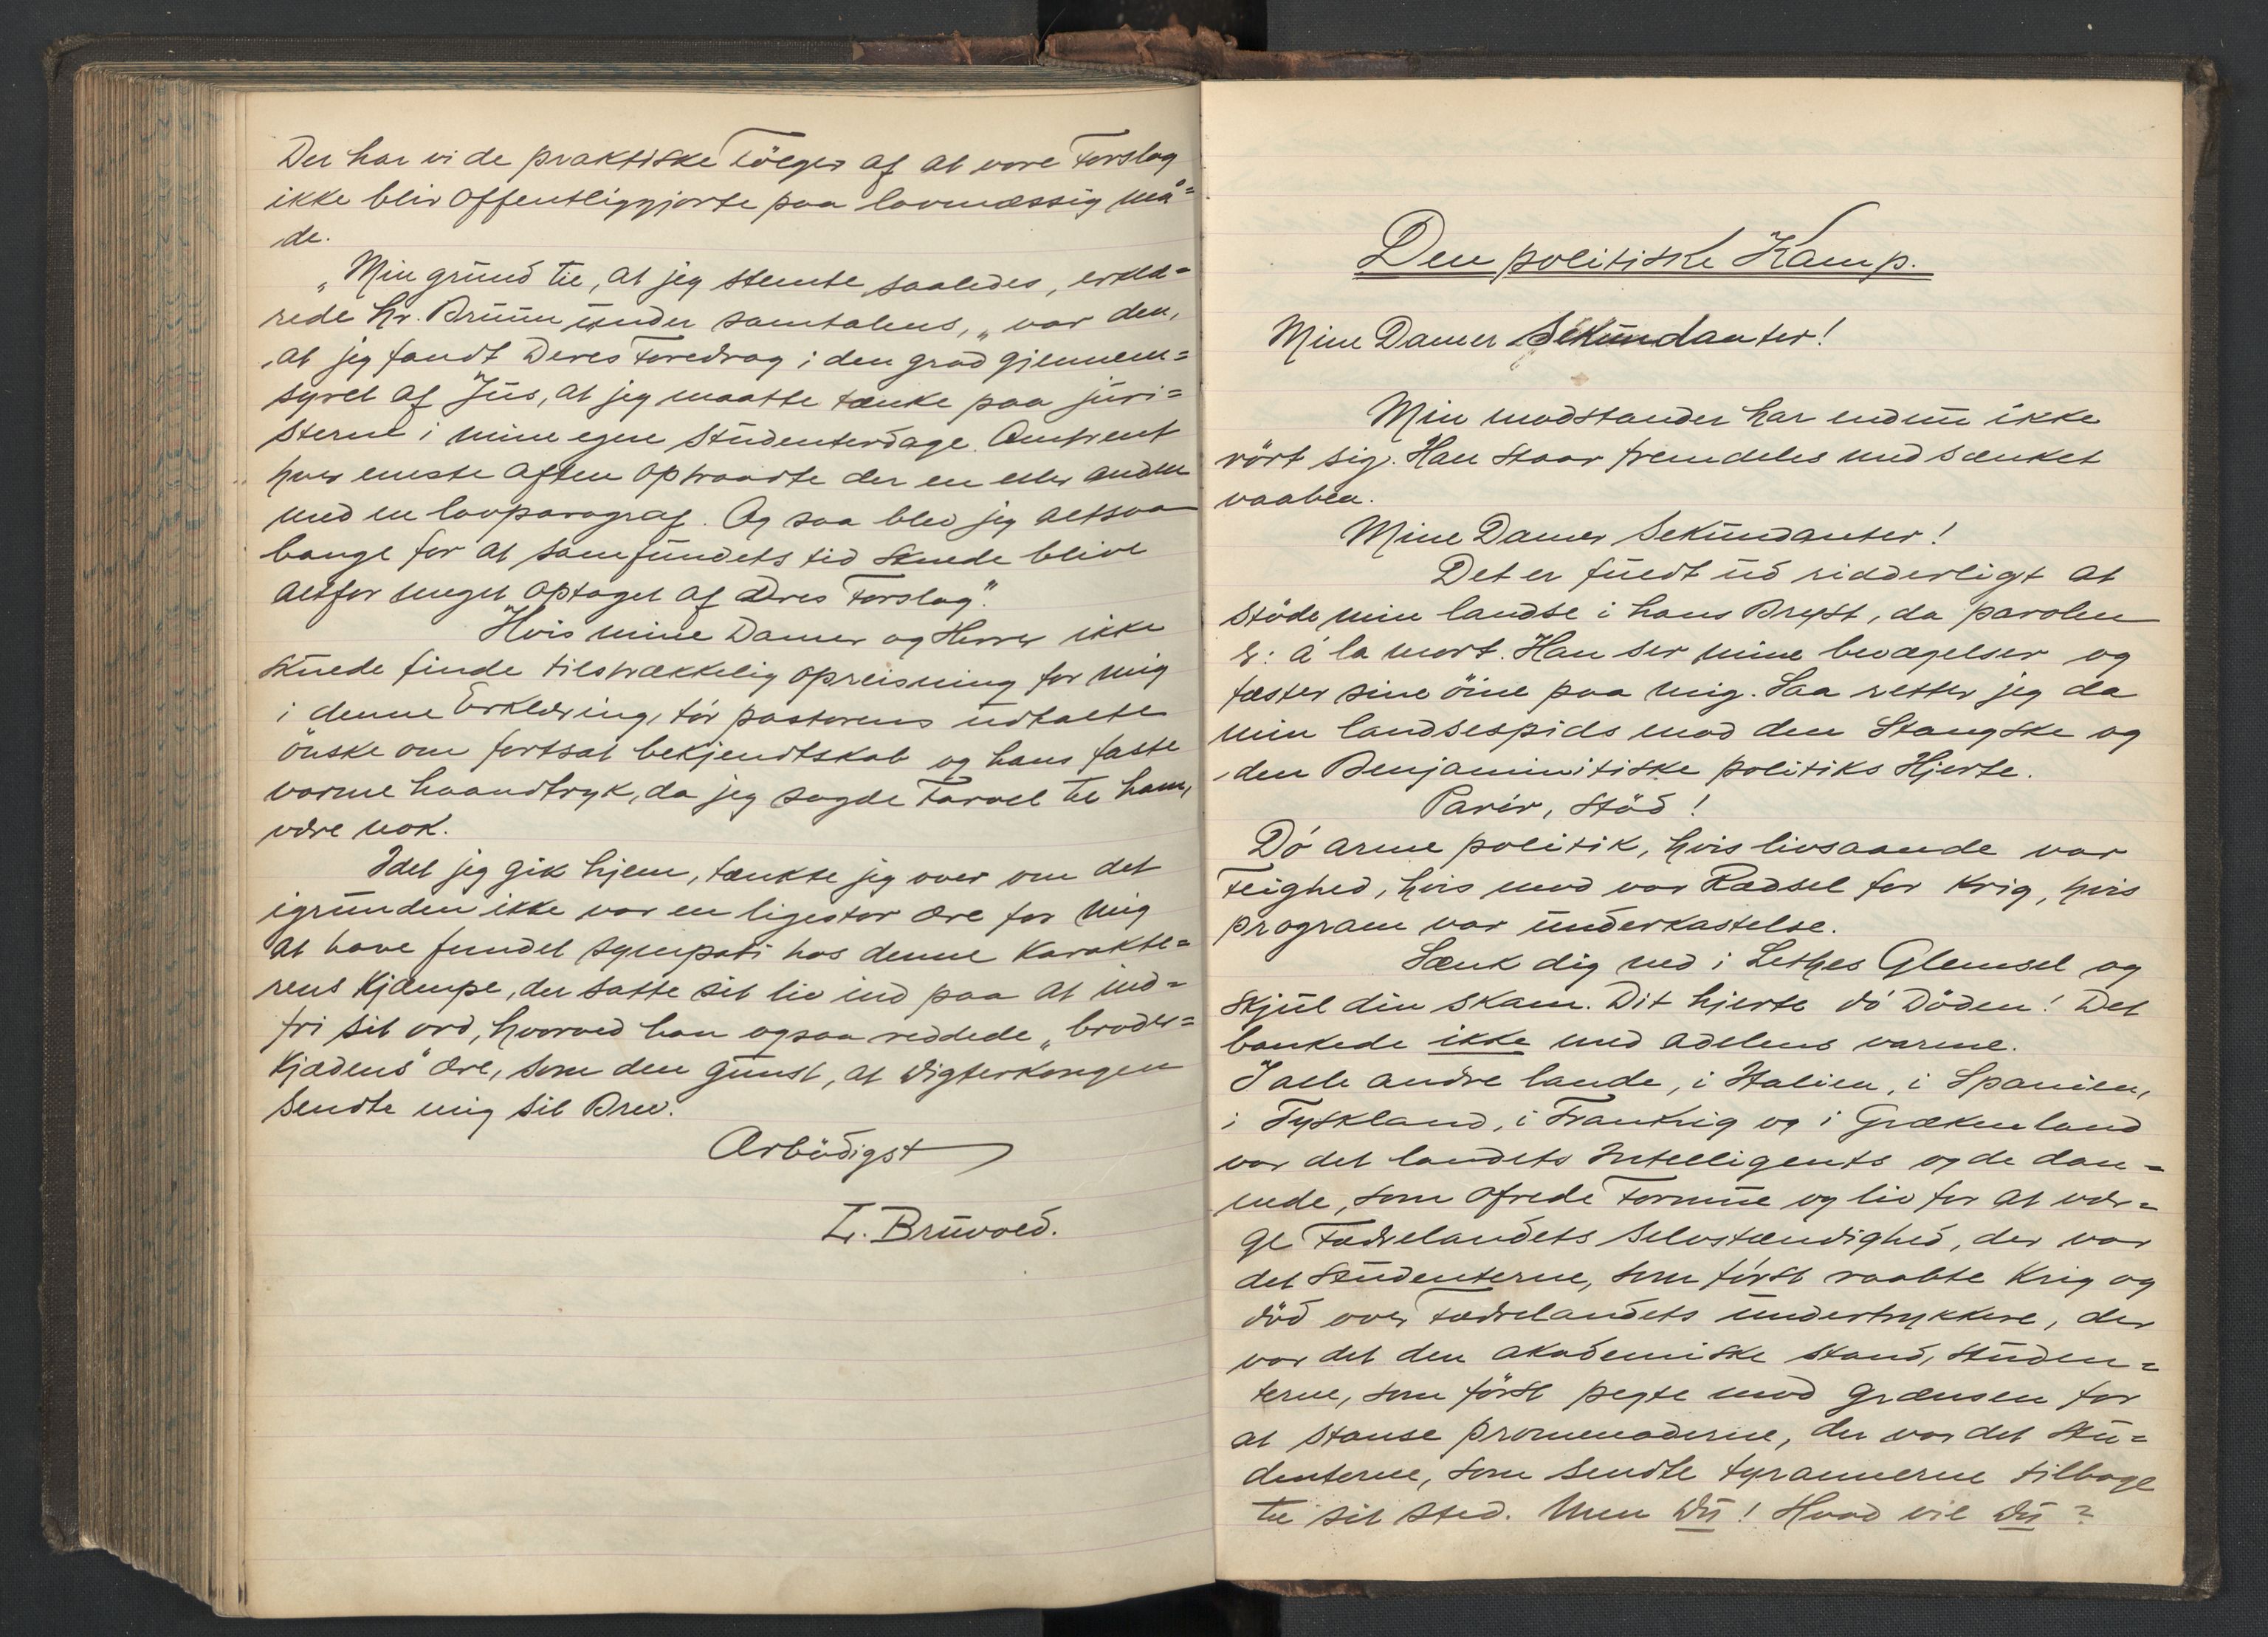 Der har vi de praktiske Følger af at vore Forslag
ikke blir offentliggjorte paa lovmæssig må=
de.
„Min grund til, at jeg stemte saaledes, erklæ=
rede hr. Bruun under samtalens, „var den,
at jeg fandt Deres Foredrag i den grad gjennem=
syret af Jus, at jeg maatte tænke paa juri=
sterne i mine egne Studenterdage. Omtrent
hver eneste aften optraadte der en eller anden
med en lovparagraf. Og saa blev jeg altsaa
bange for at samfundets tid skulde blive
altfor meget optaget af Deres Forslag“.
Hvis mine Damer og Herrer ikke
skulde finde tilstrækkelig opreisning for mig
i denne Erklæring, tør pastorens udtalte
ønske om fortsat bekjendtskab og hans faste
varme haandtryk, da jeg sagde Farvel til ham,
være nok.
Idet jeg gik hjem, tænkte jeg over om det
igrunden ikke var en ligestor ære for mig
at have fundet sympati hos denne Karakte=
rens Kjæmpe, der satte sit liv ind paa at ind=
fri sit ord, hvorved han ogsaa reddede „broder=
kjædens“ ære, som den gunst, at Digterkongen
sendte mig sit Brev.
Ærbødigst
L. Bruvold.
Den politiske Kamp.
Mine Damer Sekundanter!
Min modstander har endnu ikke
rørt sig. Han staar fremdeles med sænket
vaaben.
Mine Damer Sekundanter!
Det er fuldt ud ridderligt at
støde min landse i hans Bryst, da parolen
er: á la mort. Han ser mine bevægelser og
fæster sine öine paa mig. Saa retter jeg da
min landsespids mod den Stangske og
den Benjaminitiske politiks Hjerte.
Parér, stød!
Dø arme politik, hvis livsaande var
Feighed, hvis mod var Rædsel for Krig, hvis
program var underkastelse.
Sænk dig ned i Lethes Glemsel og
skjul din skam. Dit hjerte dø Døden! Det
bankede ikke med adelens varme.
I alle andre lande, i Italien, i Spanien,
i Tyskland, i Frankrig og i Grækenland
var det landets Intelligents og de dan=
nede, som ofrede Formue og liv for at vær=
ge Fædrelandets Selvstændighed, der var
det Studenterne, som først raabte Krig og
død over Fædrelandets undertrykkere, der
var det den akademiske stand, studen=
terne, som først pegte mod Grænsen for
at stanse promenaderne, der var det Stu=
denterne, som sendte tyrannerne tilbage
til sit sted. Men Du! Hvad vil Du?